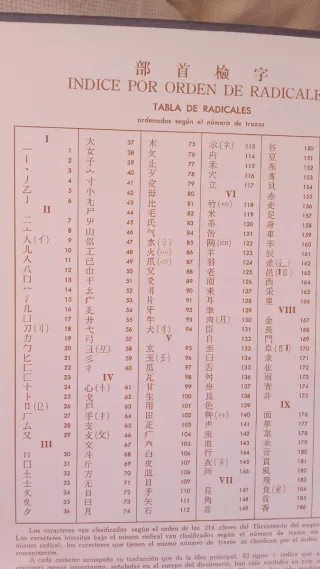 部首檢字
INDICE POR ORDEN DE RADICALE
TABLA DE RADICALES
ordenados según el número de trazos
I
一 1
丨 2
丶 3
丿 4
乙 5
亅 6
II
二 7
亠 8
人(亻) 9
儿 10
入 11
八 12
冂 13
冖 14
冫 15
几 16
凵 17
刀(刂) 18
力 19
勹 20
匕 21
匚 22
匸 23
十 24
卜 25
卩(㔾) 26
厂 27
厶 28
又 29
III
口 30
囗 31
土 32
士 33
夂 34
夊 35
夕 36
大 37
女 38
子 39
宀 40
寸 41
小 42
尢 43
尸 44
屮 45
山 46
巛 47
工 48
己 49
巾 50
干 51
幺 52
广 53
廴 54
廾 55
弋 56
弓 57
彐(彑) 58
彡 59
彳 60
IV
心(忄) 61
戈 62
戶 63
手(扌) 64
支 65
攴(攵) 66
文 67
斗 68
斤 69
方 70
无 71
日 72
曰 73
月 74
木 75
欠 76
止 77
歹 78
殳 79
毋 80
比 81
毛 82
氏 83
气 84
水(氵) 85
火(灬) 86
爪(爫) 87
父 88
爻 89
爿 90
片 91
牙 92
牛 93
犬(犭) 94
V
玄 95
玉(王) 96
瓜 97
瓦 98
甘 99
生 100
用 101
田 102
疋 103
疒 104
癶 105
白 106
皮 107
皿 108
目 109
矛 110
矢 111
石 112
示(礻) 113
禸 114
禾 115
穴 116
立 117
VI
竹(⺮) 118
米 119
糸 120
缶 121
网(罒) 122
羊 123
羽 124
老 125
而 126
耒 127
耳 128
聿 129
肉(月) 130
臣 131
自 132
至 133
臼 134
舌 135
舛 136
舟 137
艮 138
色 139
艸(艹) 140
虍 141
虫 142
血 143
行 144
衣(衤) 145
襾 146
VII
見 147
角 148
言 149
谷 150
豆 151
豕 152
豸 153
貝 154
赤 155
走 156
足 157
身 158
車 159
辛 160
辰 161
辵(辶) 162
邑(阝) 163
酉 164
釆 165
里 166
VIII
金 167
長 168
門 169
阜(阝) 170
隶 171
隹 172
雨 173
靑 174
非 175
IX
面 176
革 177
韋 178
韭 179
音 180
頁 181
風 182
飛 183
食(飠) 184
首 185
香 186
Los caracteres van clasificados según el orden de las 214 claves del Diccionario del emper
Los caracteres inscritos bajo el mismo radical van clasificados según el número de trazos
mismo radical, los caracteres que tienen el mismo número de trazos se clasifican por el orden
romanización.
A cada carácter acompaña su traducción que da la libra principal. El signo